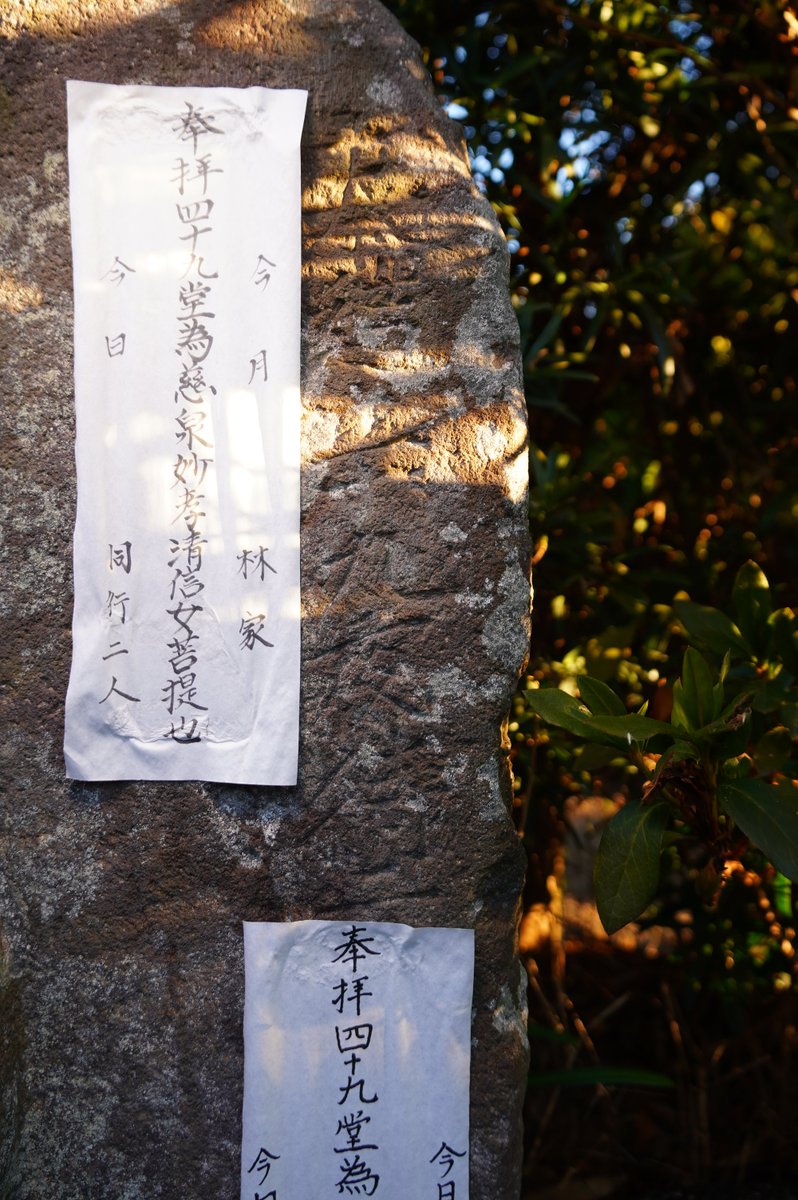 今月 林家
奉拝四十九堂為慈泉妙孝清信女菩提也
今日 同行二人
今
奉拝四十九堂為
今